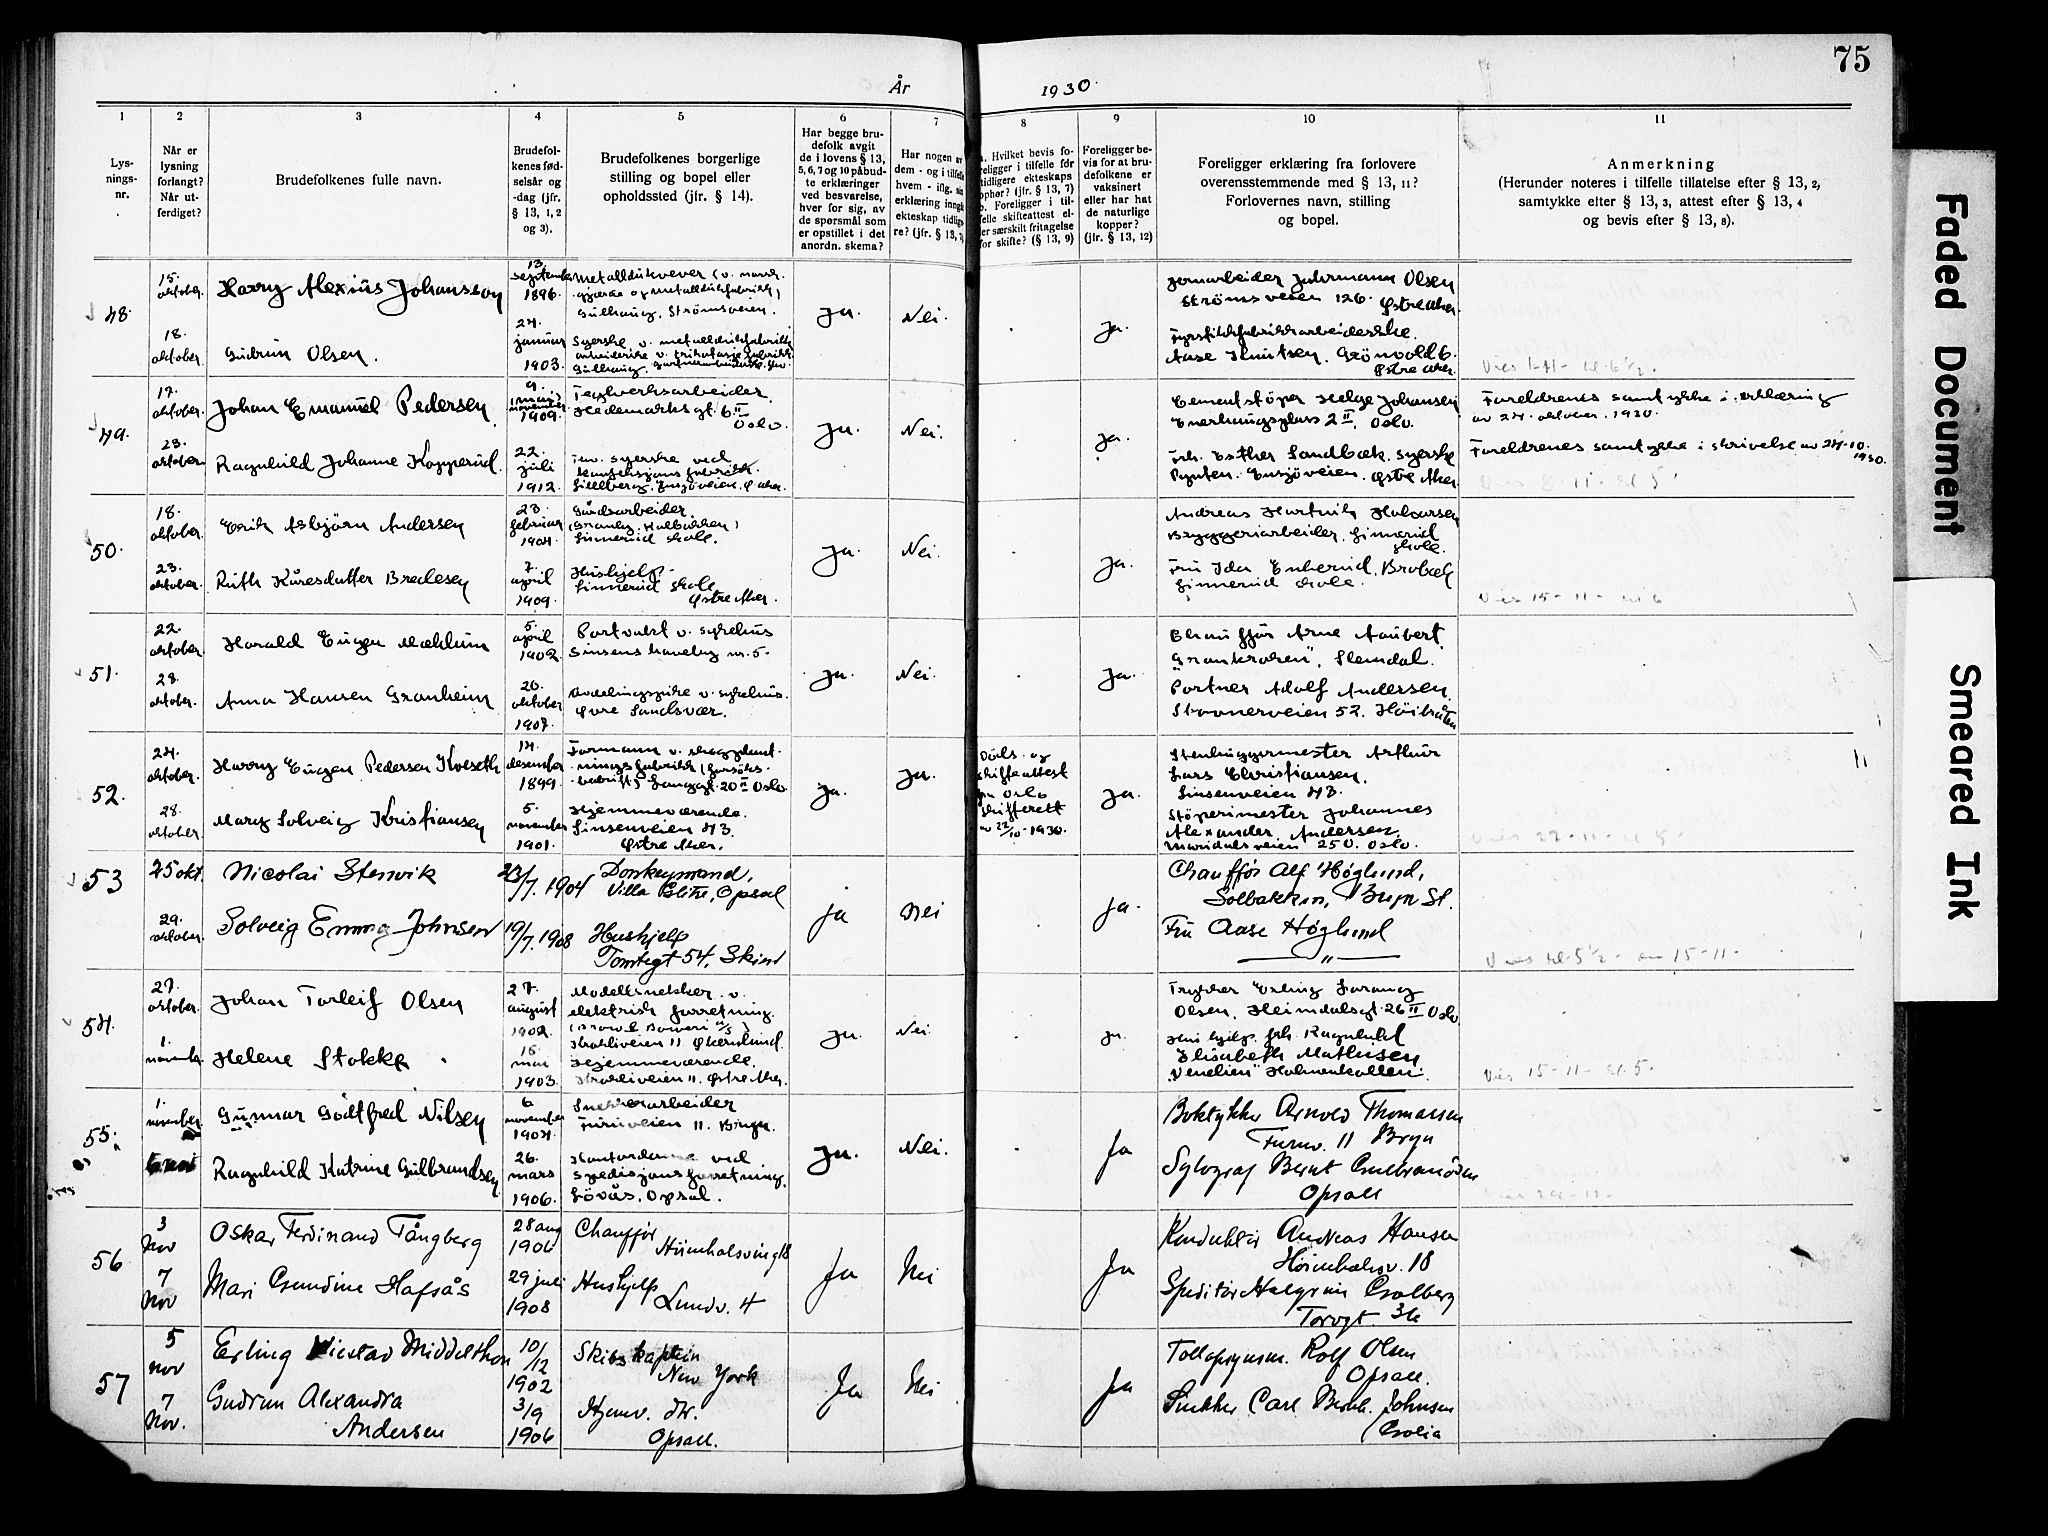 75
År 1930.
1 2 3 4 5 6 7 8 9 10 11
Lys-
nings-
nr.
Når er
lysning
forlangt?
Når ut-
ferdiget?
Brudefolkenes fulle navn.
Brudefol-
kenes fød-
selsår og
-dag (jfr.
§ 13, 1, 2
og 3).
Brudefolkenes borgerlige
stilling og bopel eller
opholdssted (jfr. § 14).
Har begge bru-
defolk avgit
de i lovens § 13,
5, 6, 7 og 10 påbud-
te erklæringer
ved besvarelse,
hver for sig, av
de spørsmål som
er opstillet i det
anordn. skema?
Har nogen av
dem - og i tilfelle
hvem - iflg. sin
erklæring inngå
ekteskap tidlige-
re? (jfr. § 13,
Hvilket bevis fo-
religger i tilfelle for
tidligere ekteskaps
ophør? (jfr. § 13, 7)
b. Foreligger i til-
felle skifteattest el-
ler særskilt fritagelse
for skifte? (§ 13, 9)
Foreligger be-
vis for at bru-
defolkene er
vaksinert
eller har hat
de naturlige
kopper?
(jfr. § 13, 12)
Foreligger erklæring fra forlovere
overensstemmende med § 13, 11?
Forlovernes navn, stilling
og bopel.
Anmerkning
(Herunder noteres i tilfelle tillatelse efter § 13, 2,
samtykke efter § 13, 3, attest efter § 13, 4
og bevis efter § 13, 8).
48.
15.
oktober.
18.
oktober
Harry Alexius Johansson
Gudrun Olsen.
13.
september
1896.
24.
januar
1903.
Metalldukvever
Gulhaug, Strømsveien.
Syerske v.
ja. Nei. ja.
Jernarbeider Olsen
Strømsveien 126. Østre Aker.
Aase Knutsen, Grönvold 6.
Østre Aker.
49.
17.
oktober.
23.
oktober.
Johan Emanuel Pedersen
Ragnhild Johanne Kopperud.
9.
(mai)
november
1909.
22.
juli
1912.
Teglverksarbeider.
Hedemarksgt. 6 II
Oslo.
syerske ved
ja. Nei. ja.
Cementstöper Helge Johansen
Enerhaugsplass 2 II, Oslo.
Frk. Esther Sandbæk, syerske
Ensjöveien. Østre Aker.
Foreldrenes samtykke i erklæring
av 24. oktober. 1930.
Foreldrenes samtykke i skrivelse av 24-10.
1930.
50.
18.
oktober.
23.
oktober.
Erik Asbjørn Andersen
Ruth Kåresdatter Bredesen
23.
februar
1904.
7.
april
1909.
Gårdsarbeider.
Linnerud skole.
Hushjelp.
Linnerud skole
Østre Aker.
ja. Nei. ja.
Andreas Hartvik Halvorsen
Bryggeriarbeider, Linnerud
skole.
Fru Ida Enberud, Brobæk
Linnerud skole.
Vies 15-11- kl 6
51.
22.
oktober.
28.
oktober.
Harald Eugen Mæhlum
Anna Hansen Granheim
5.
april
1902.
20.
oktober
1907.
Portvakt v. sykehus
Sinsens haveby nr. 5.
Avdelingspike v. sykehus.
Øvre Sandsvær.
ja. Nei. ja.
Chauffør Arne Aubert.
Slemdal.
Portner Adolf Andersen.
Stovnerveien 52. Höibråten
52.
24.
oktober.
28.
oktober.
Harry Eugen Pedersen Kveseth
Mary Solveig Kristiansen
14.
desember
1899.
5.
november
1901.
Formann v.
Langgt. 20 II Oslo
Hjemmeværende.
Sinsenveien 43.
Østre Aker.
ja. ja.
Döds- og
skifteattest
fra Oslo
skifterett
av 22/10-1930.
ja.
Stenhuggermester Arthur
Lars Christiansen.
Sinsenveien 43.
Stöperimester Johannes
Alexander Andersen.
Maridalsveien 250. Oslo.
53
25 okt.
29.
oktober.
Nicolai Stenvik
Solveig Emma Johnsen
23/7. 1904
19/7. 1908
Donkeymand,
Villa Opsal
Hushjelp
Tomtegt 54, Skien
ja Nei ja.
Chauffør Alf Høglund,
Solbakken, Bryn St.
Fru Aase Høglund
— " —
Vies kl. 5 1/2 - 15-11-
54.
27.
oktober.
1.
november.
Johan Torleif Olsen
Helene Stokke
27.
august
1902.
15.
mai
1903.
Modellsnekker v.
elektrisk forretning.
Hjemmeværende.
ja. Nei. ja.
Trykker Erling
Olsen, Heimdalsgt. 26 II Oslo
Ragnhild
Elisabeth Mathisen
Holmenkollen.
Vies 15-11- kl. 5.
55.
1.
november
Gunnar Godtfred Nilsen
Ragnhild Katrine Gulbrandsen
6
november
1904.
26.
mars
1906.
Snekkerarbeider
Furuveien 11. Bryn.
Kontordame ved
spedisjonsforretning.
Lövås, Opsal.
ja. Nei. ja
Boktykker Arnold Thomassen
Furuv. 11 Bryn
Bernt Gulbrandsen
Opsall
Vies 29-11-
56
3
Nov
7
Nov
Oskar Ferdinand Tångberg
Mari Gundine Hafsås
28 aug
1906
29 juli
1908
Chauffør
Høienhalsving 18
Hushjelp
Lundv. 4
Ja Nei Ja
Konduktør Andreas Hansen
Høienhalsv. 18
Speditør Halgrim Golberg
Torvgt. 36
57
5
nov
7
Nov.
Erling Middelthon
Gudrun Alexandra
Andersen
10/12
1902
3/9
1906
Skibskaptein
New York
Hjemv. dtr.
Opsall.
Ja Nei Ja
Tollopsynsm. Rolf Olsen
Opsall.
Snekker Carl Johnsen
Golia
Faded Document
Smeared Ink